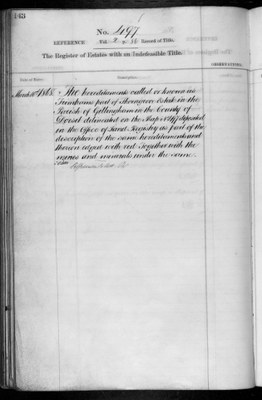 163
No. 497
REFERENCE Vol. Record of Title.
The Register of Estates with an Indefeasible Title.
Date of Entry. Description. OBSERVATIONS.
March 1865. The hereditaments called or known as
part of Thorngrove Estate in the
Parish of Gillingham in the County of
Dorset delineated on the Map No 497 deposited
in the Office of Land Registry as part of the
description of the same hereditaments and
thereon edged with red Together with the
mines and minerals under the same